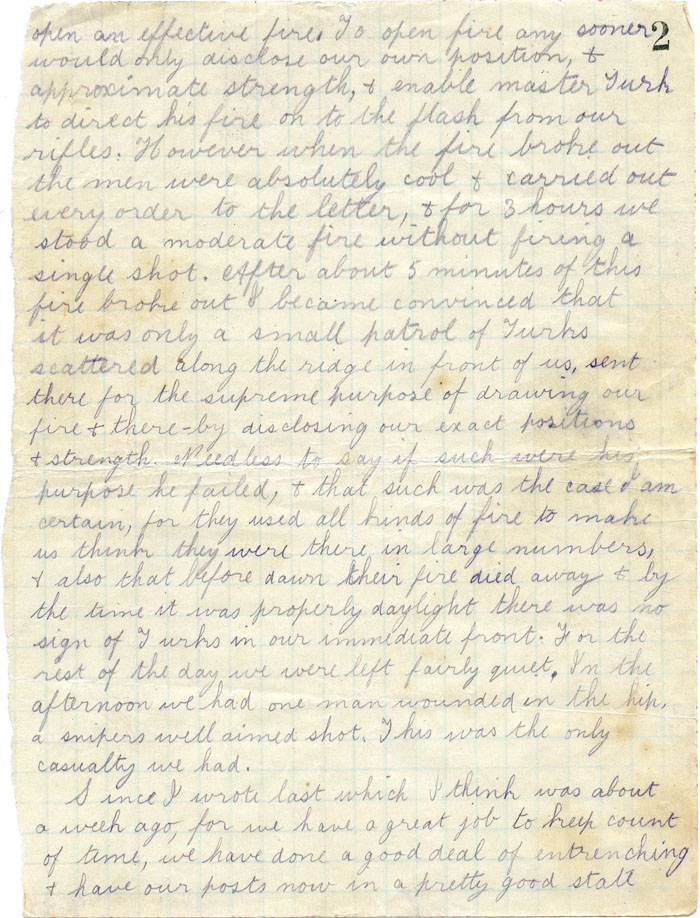 open an effective fire. To open fire any sooner 2
would only disclose our own position, &
approximate strength, & enable master Turk
to direct his fire on to the flash from our
rifles. However when the fire broke out
the men were absolutely cool & carried out
every order to the letter, & for 3 hours we
stood a moderate fire without firing a
single shot. After about 5 minutes of this
fire broke out I became convinced that
it was only a small patrol of Turks
scattered along the ridge in front of us, sent
there for the supreme purpose of drawing our
fire & there-by disclosing our exact positions
& strength. Needless to say if such were his
purpose he failed, & that such was the case I am
certain, for they used all kinds of fire to make
us think they were there in large numbers,
& also that before dawn their fire died away & by
the time it was properly daylight there was no
sign of Turks in our immediate front. For the
rest of the day we were left fairly quiet. In the
afternoon we had one man wounded in the hip,
a snipers well aimed shot. This was the only
casualty we had.
Since I wrote last which I think was about
a week ago, for we have a great job to keep count
of time, we have done a good deal of entrenching
& have our posts now in a pretty good state